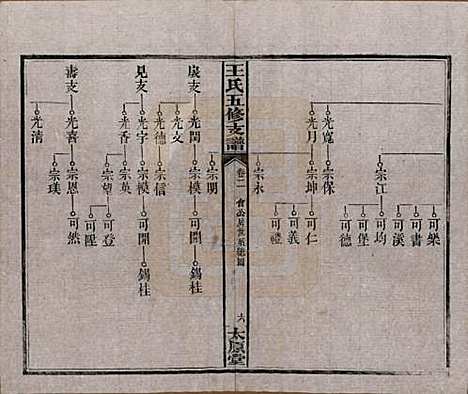 光寬
宗保
宗江
可樂
可書
可漢
可均
可堡
可德
光月
宗坤
可仁
可義
可禮
宗永
王氏五修支譜
卷二
六
太原堂
宗明
支
光閏
宗模
可開
錫桂
光文
光德
宗信
見支
光宇
宗模
可開
錫桂
光香
宗英
宗望
可登
可陞
壽支
光喜
宗恩
可然
宗璞
光清